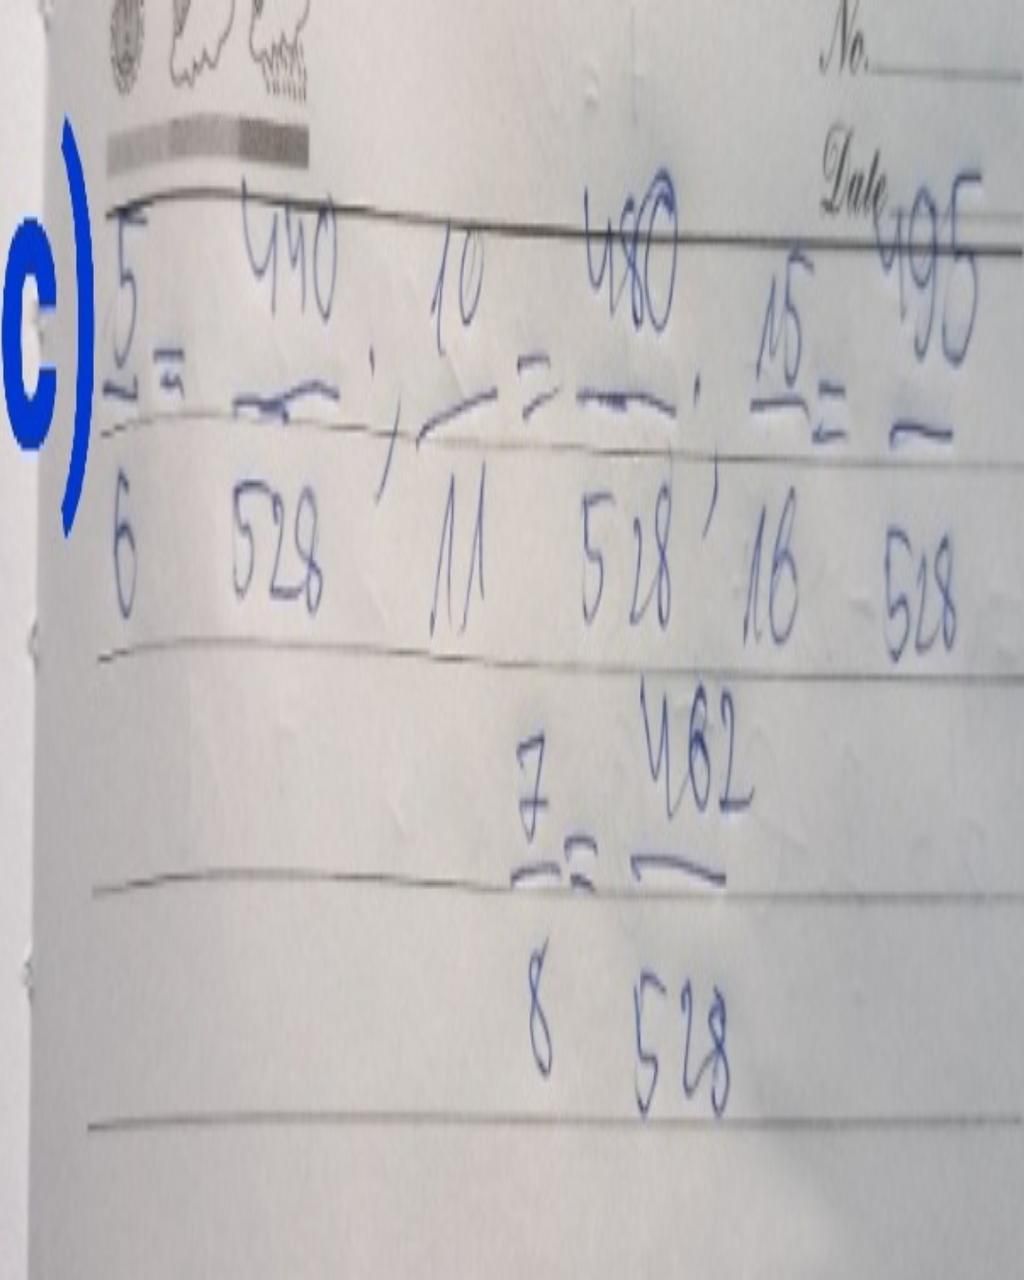 No.
Date
c) 5/6 = 440/528 ; 10/11 = 480/528 ; 15/16 = 495/528
7/8 = 462/528